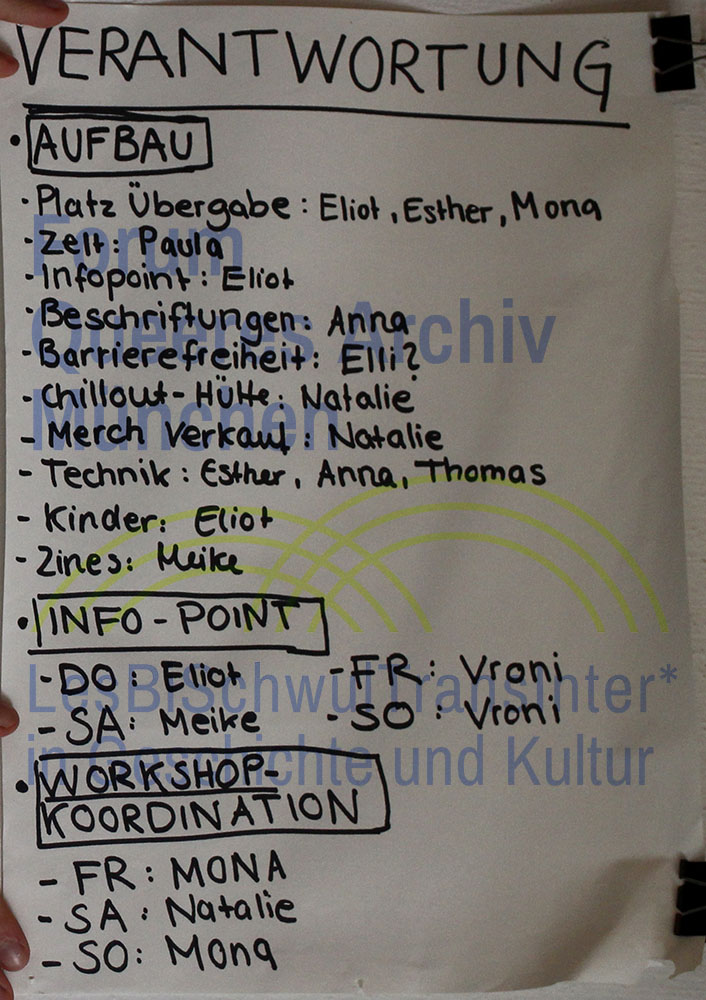 VERANTWORTUNG
• AUFBAU
- Platz Übergabe: Eliot, Esther, Mona
- Zelt: Paula
- Infopoint: Eliot
- Beschriftungen: Anna
- Barrierefreiheit: Elli?
- Chillout-Hütte: Natalie
- Merch Verkauf: Natalie
- Technik: Esther, Anna, Thomas
- Kinder: Eliot
- Zines: Meike
• INFO-POINT
- DO: Eliot - FR: Vroni
- SA: Meike - SO: Vroni
• WORKSHOP-
KOORDINATION
- FR: MONA
- SA: Natalie
- SO: Mona
Forum
Queeres Archiv
München
LesBiSchwulTransInter*
in Geschichte und Kultur